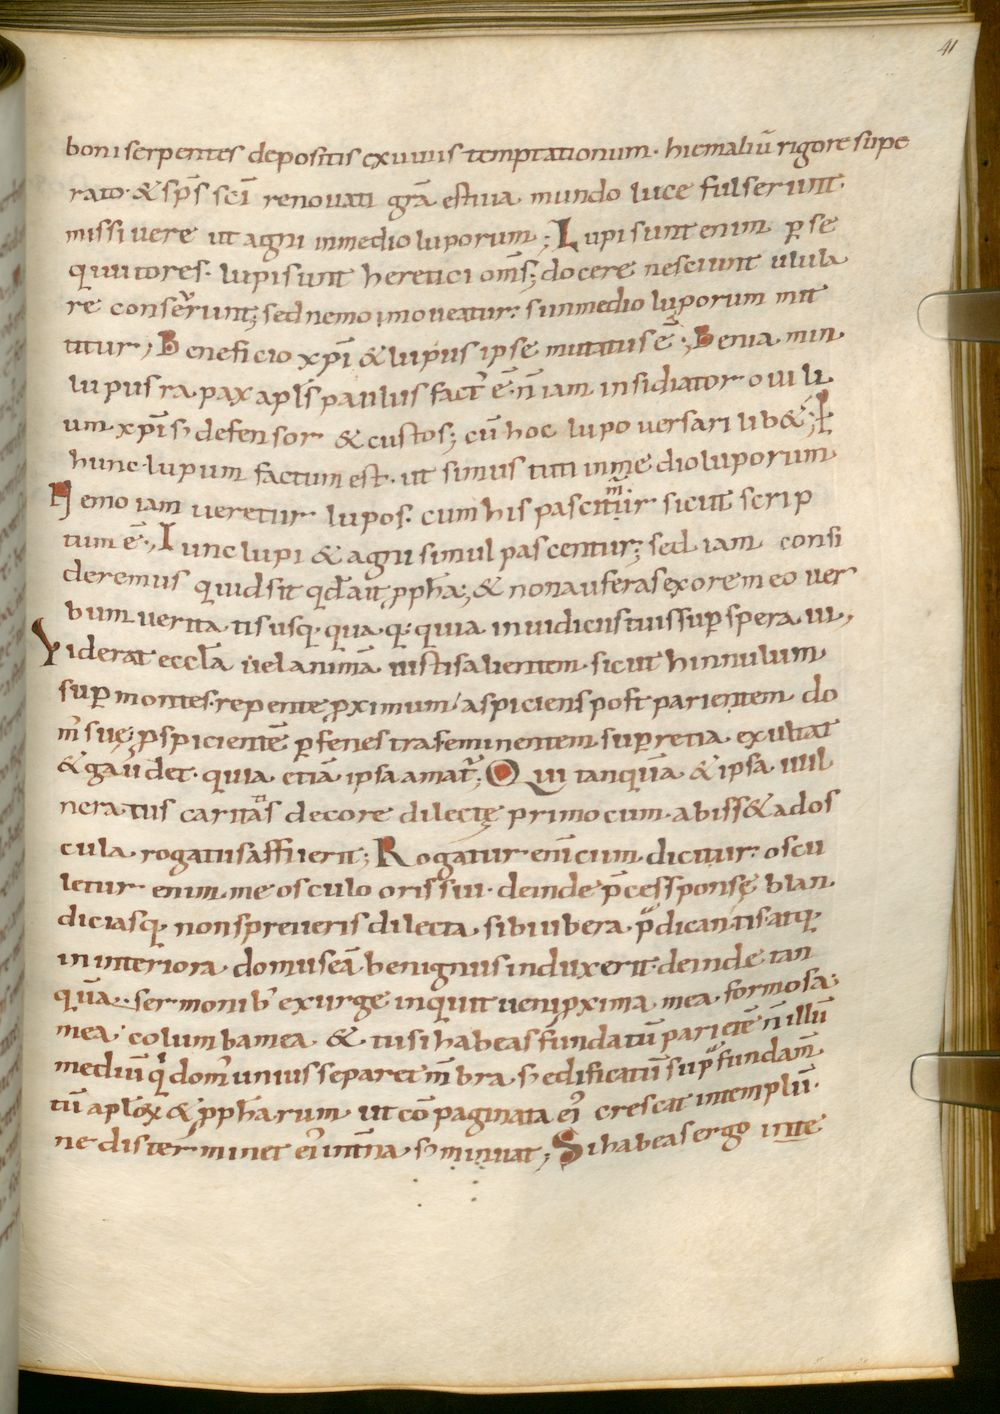 41
boni serpentes depositis exuuiis temptationum · hiemaliū rigore supe
rato · & sp̄s sc̄i renouati gr̄a estiua mundo luce fulserunt
missi uere ut agni inmedio luporum ; Lupi sunt enim p̱ se
quutores · lupi sunt heretici om̄s ; docere nesciunt ulula
re conser̄unt ; sed nemo moueatur : si inmedio luporum mit
titur ; Beneficio xp̄i & lupus ipse mutatus ē ; Beniamin
lupus rapax apl̄s paulus fact' ē · n̄ iam insidiator ouili
um xp̄i s; defensor & custos ; cū hoc lupo uersari lib& ; I
hunc lupum factum est · ut simus tuti inmedio luporum
Nemo iam ueretur lupos · cum his pascimur sicut scrip
tum ē ; Tunc lupi & agni simul pascentur ; sed iam consi
deremus quid sit qd̄ ait ꝓph̄a ; & non auferas ex ore meo uer
bum ueritatis usq· quaq· : quia in iudiciis tuis sup̱ speraui ;
Viderat eccl̄a uel animā iusti salientem sicut hinnulum
sup̱ montes · repente ꝓximum / aspiciens post parientem do
m' suę ; ꝓspicientē p̱ fenestras eminentem sup̱ retia exultat
& gaudet · quia etiā ipsa amat̄ ; Qui tanquā & ipsa uul
neratus caritas decore dilectę primo cum abiss& ad os
cula rogatus affuerit ; Rogatur enī cum dicitur : oscu
letur enim me osculo oris sui · deinde p̄cess sponsę blan
diciasq· non spreueris dilecta sibi ubera p̄dicantis · atq·
in interiora domus eā benignus induxerit · deinde tan
quā · sermonib' exurge inquit ueni ꝓxima mea formosa
mea · columba mea & tu si habeas fundatū parietē n̄ illū
mediū qi dom' unius separet m̄bra s; edificatū sup̱ fundam̄
tū aplo&#42813; & ꝓph̄arum ut cōpaginata ei' crescat in templū ·
ne disterminet ei' int̄na s; muniat ; Si habeas ergo inte